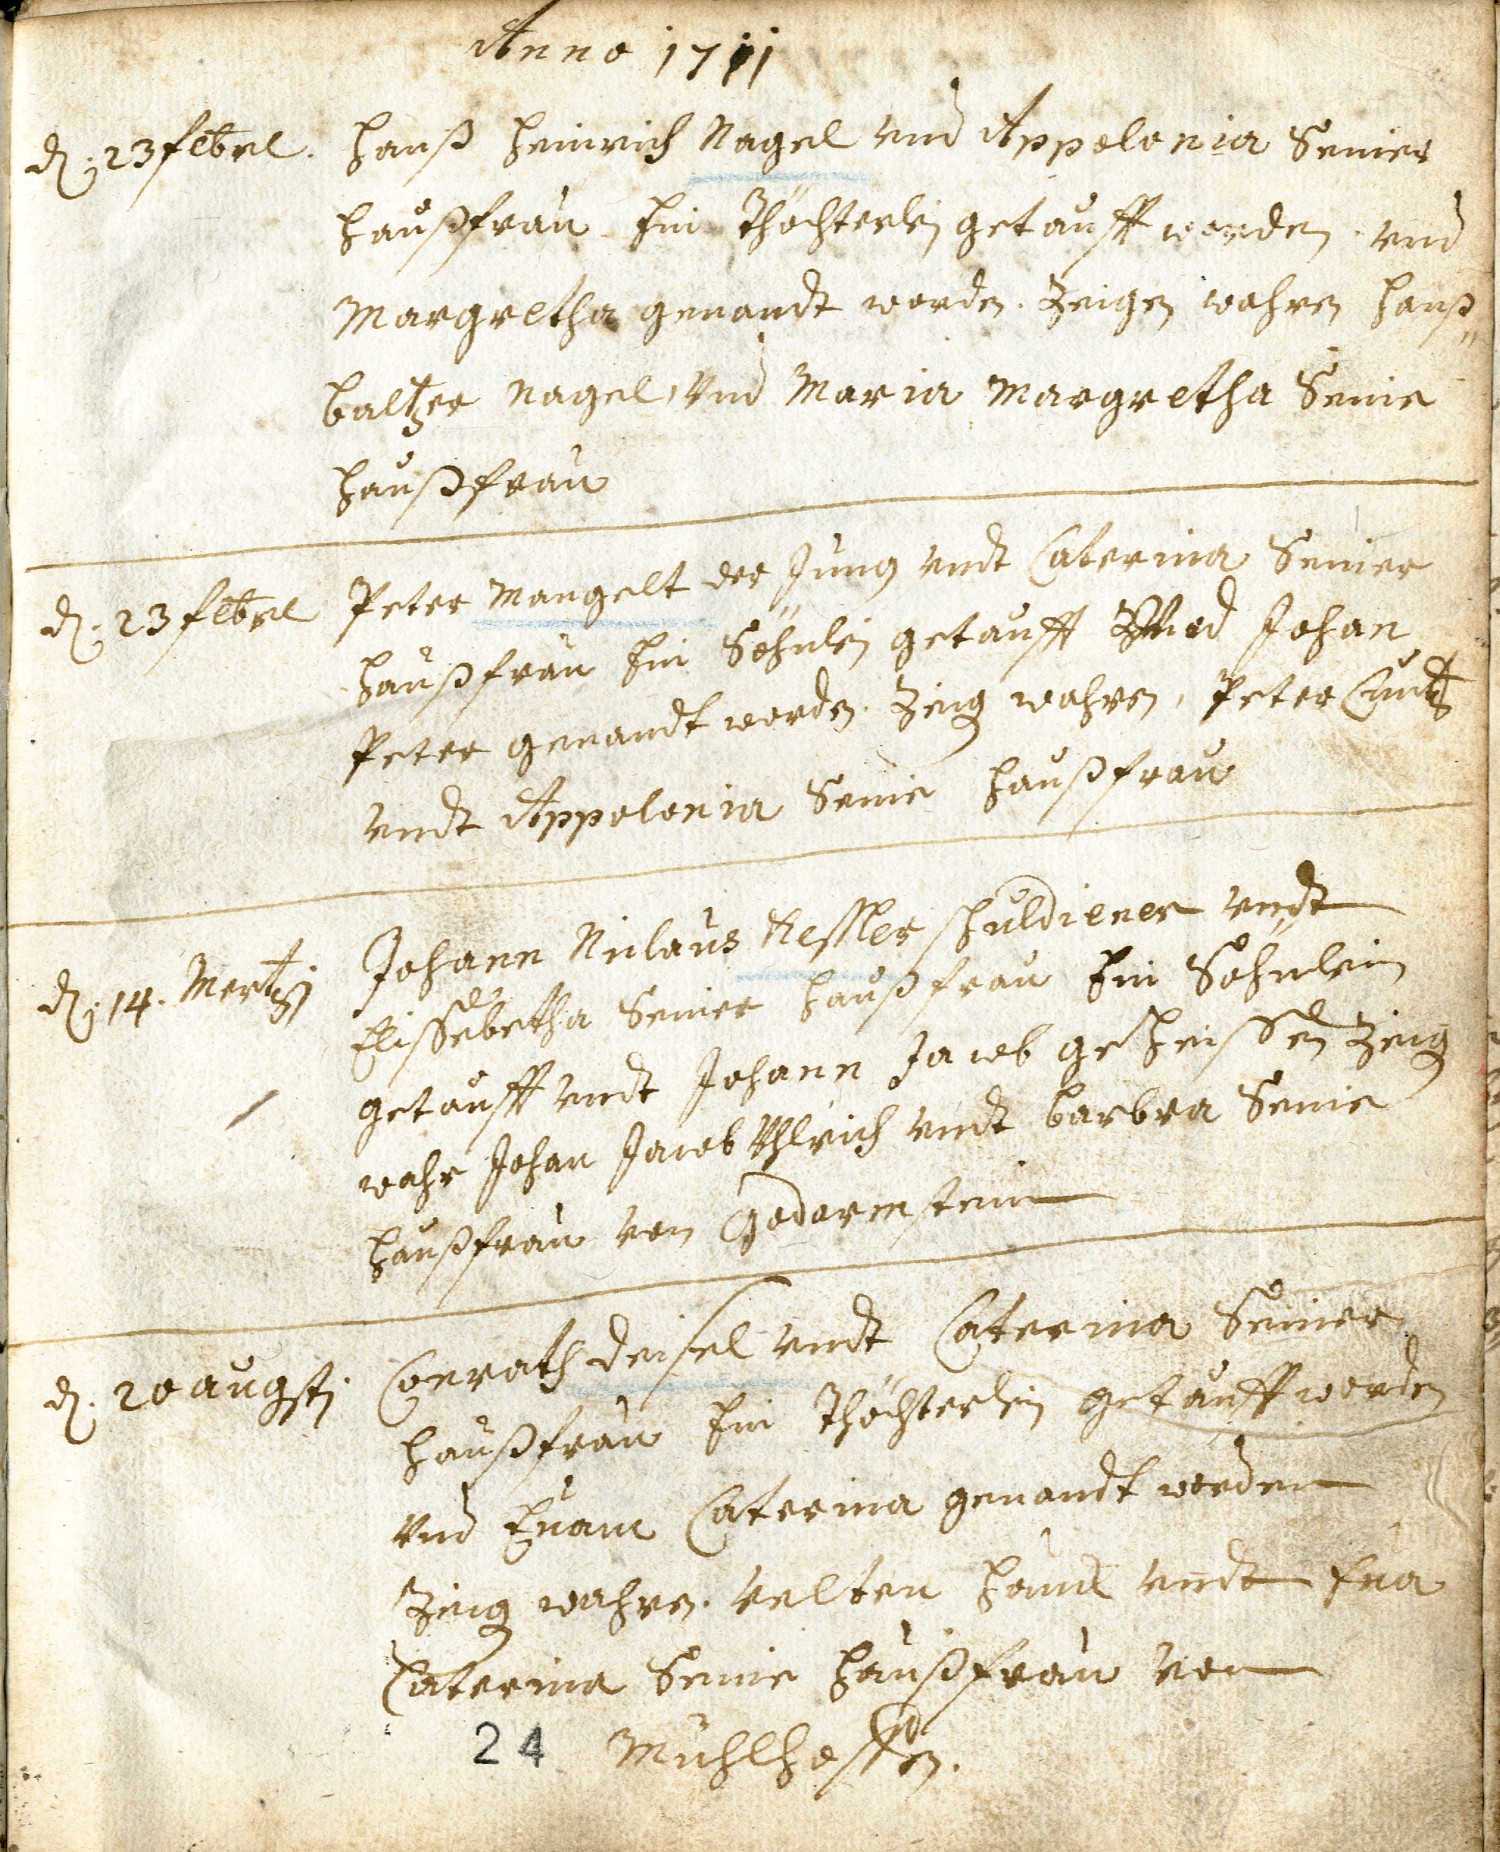 Anno 1711
d. 23 febrl. Hanß Heinrich Nagel vnd Appolonia Seiner
Haußfrau Ein Thöchterlein getaufft worden vnd
Margretha genandt worden. Zeigen wahren Hanß
baltzer Nagel, vnd Maria Margretha Seine
Haußfrau
d. 23 febrl Peter Mangelt der Jung vndt Caterina Seiner
Haußfrau Ein Söhnlein getaufft Vnd Johan
Peter genandt worden. Zeig wahren, Peter Cuntz
vndt Appolonia Seine Haußfrau
d. 14. Mertzi Johann Niclaus Kessler schuldiener vndt
Elissebetha Seiner Haußfrau Ein Söhnlein
getaufft vndt Johann Jacob geheissen Zeig
wahr Johan Jacob Vhlrich vndt barbra Seine
Haußfrau von Godarmstein
d. 20 augsti Conrath deisel vndt Caterina Seiner
Haußfrau Ein Thöchterlein getaufft worden
vnd Euam Caterina genandt worden
Zeig wahren. Velten vndt Eua
Caterina Seine Haußfrau von
24 Mühlhossen.